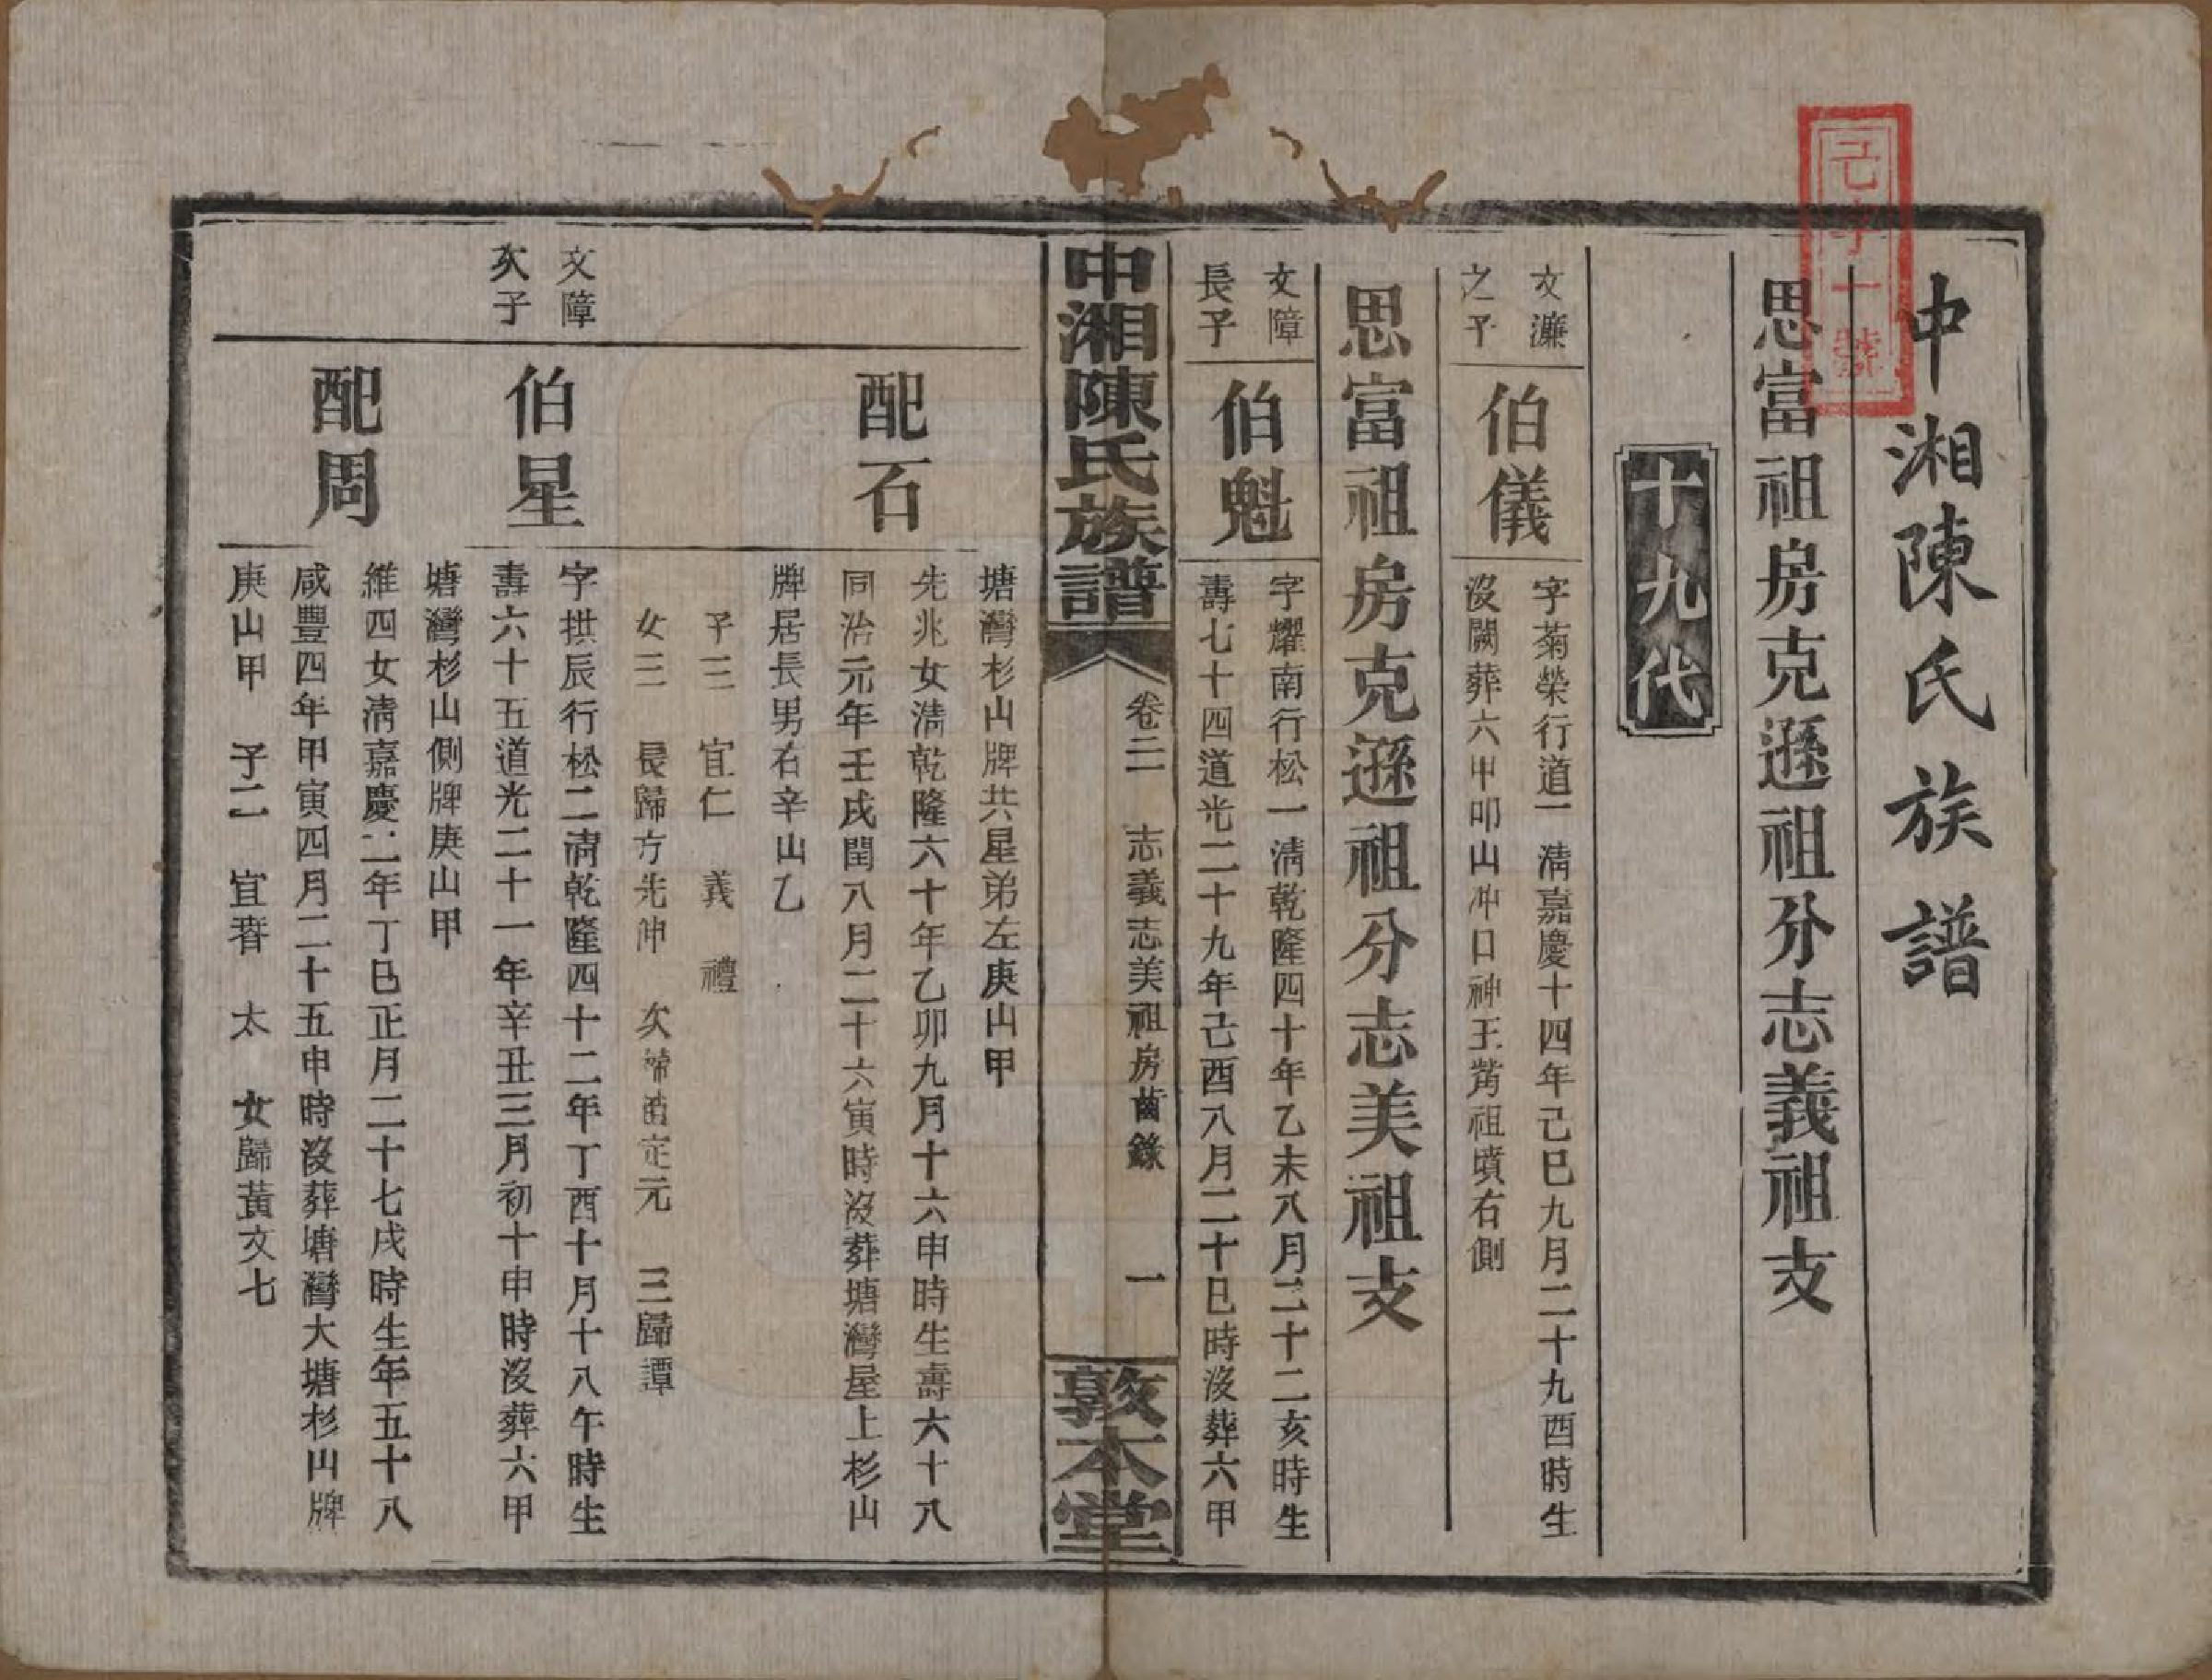 中湘陳氏族譜
思富祖房克遜祖分志義祖支
十九代
文濂
之子
伯儀
字菊榮行道一清嘉慶十四年己巳九月二十九酉時生
沒闕葬六甲叩山冲口神王嘴祖墳右側
思富祖房克遜祖分志美祖支
文障
長子
伯魁
字耀南行松一清乾隆四十年乙未八月二十二亥時生
壽七十四道光二十九年己酉八月二十巳時沒葬六甲
中湘陳氏族譜
卷三 志義志美祖房齒錄 一
敦本堂
塘灣杉山牌共星弟左庚山甲
配石
先兆女清乾隆六十年乙卯九月十六申時生壽六十八
同治元年壬戌閏八月二十六寅時沒葬塘灣屋上杉山
牌居長男右辛山乙
子三 宜仁 義 禮
女三 長歸方光 次 定元 三歸譚
文障
次子
伯星
字拱辰行松二清乾隆四十二年丁酉十月十八午時生
壽六十五道光二十一年辛丑三月初十申時沒葬六甲
塘灣杉山側牌庚山甲
配周
維四女清嘉慶二年丁巳正月二十七戌時生年五十八
咸豐四年甲寅四月二十五申時沒葬塘灣大塘杉山牌
庚山甲 子二 宜春 太 女歸黃文七
字一號